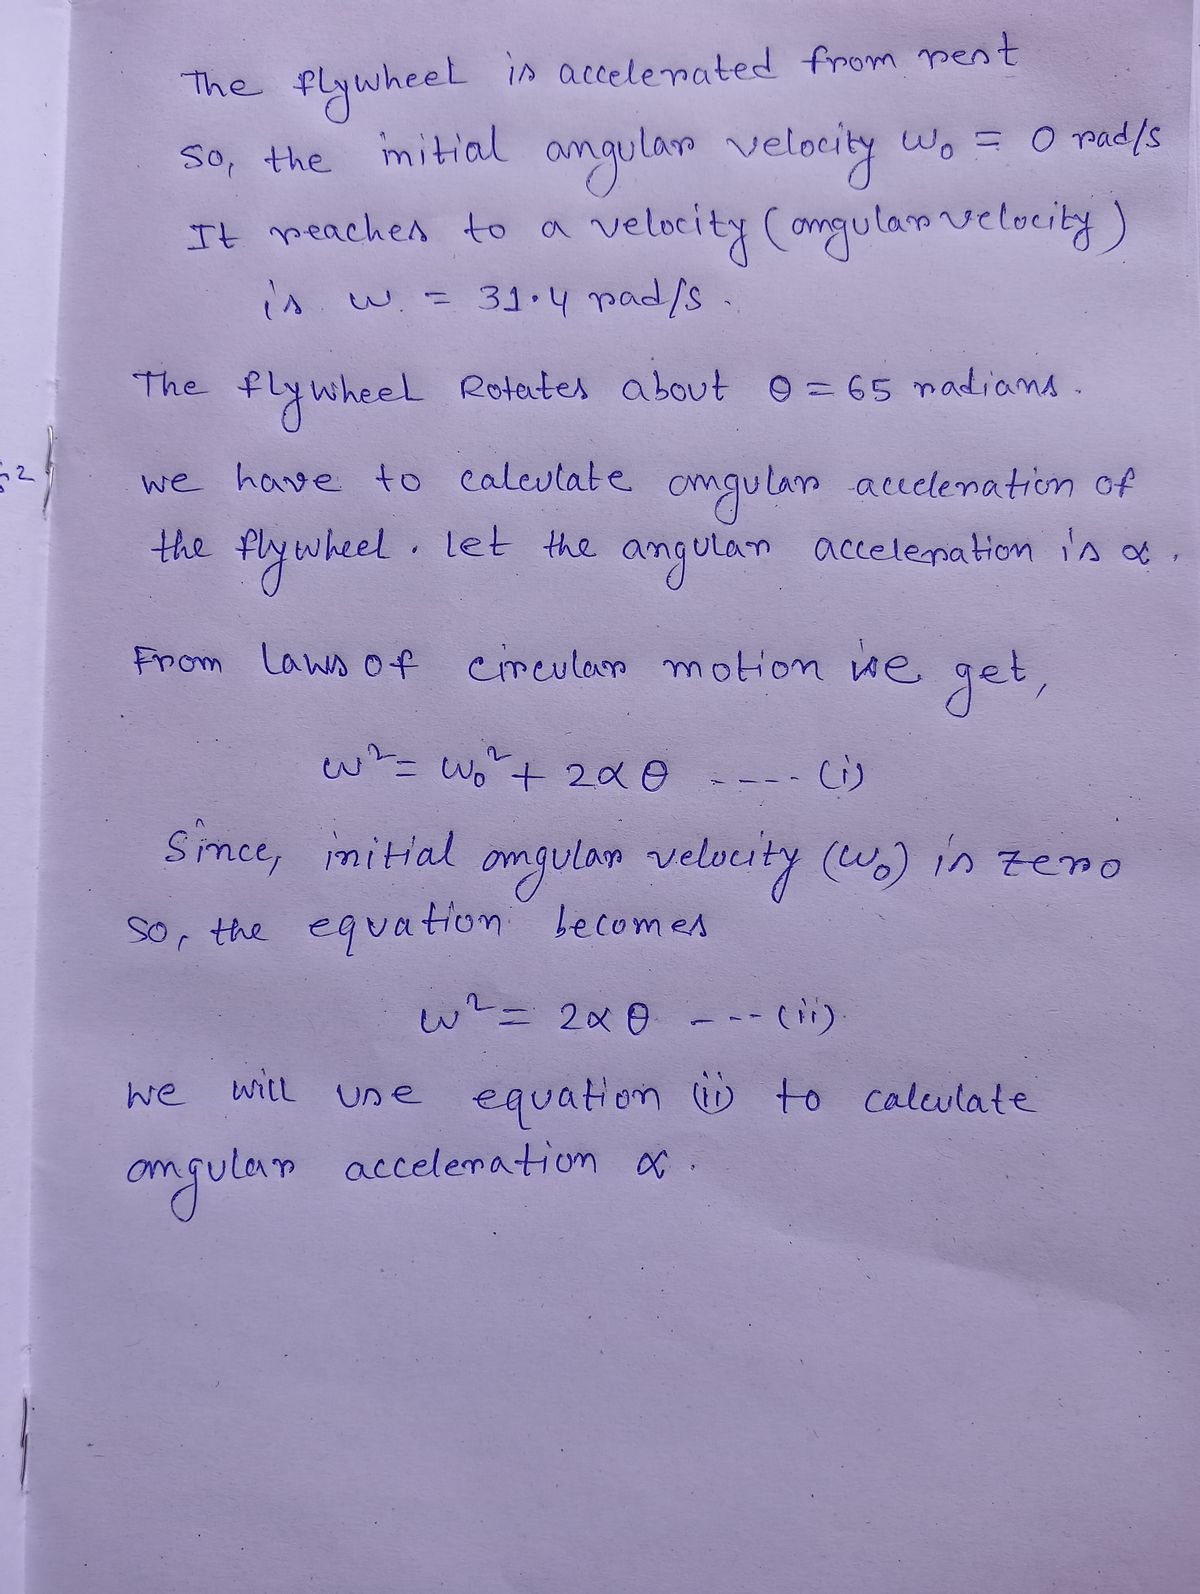 The flywheel is accelerated from rest
So, the initial angular velocity ω₀ = 0 rad/s
It reaches to a velocity (angular velocity)
is ω = 31.4 rad/s.
The flywheel Rotates about θ = 65 radians.
we have to calculate angular acceleration of
the flywheel. let the angular acceleration is α.
From laws of circular motion we get,
ω² = ω₀² + 2αθ ---- (i)
Since, initial angular velocity (ω₀) is zero
so, the equation becomes
ω² = 2αθ --- (ii)
we will use equation (ii) to calculate
angular acceleration α.